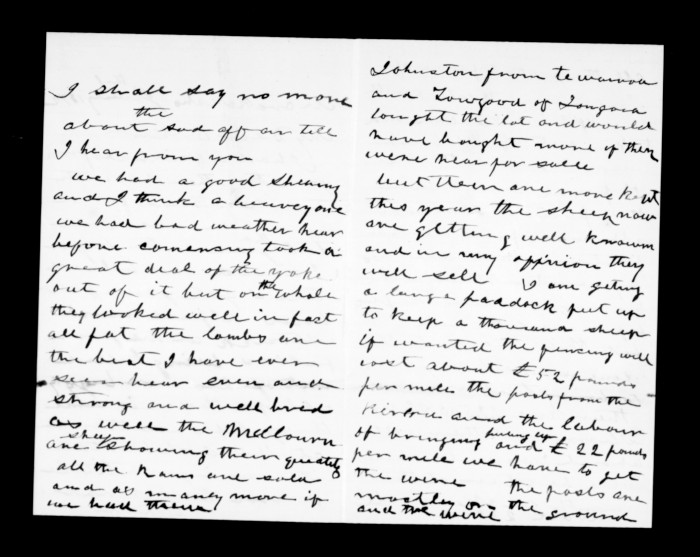 I shall say no more
the
about sad affair till
I hear from you
we had a good Shearing
and I think a heavey one
we had bad weather hear
before comensing took a
great deal of the yoke
out of it but on the whole
they looked well in fact
all fat the lambs are
the best I have ever
seen hear even and
strong and well bred
as well the Melbourn
sheep
are showing their quality
all the Rams are sold
and as maney more if
we had them
Johnston from te wairoa
and Towgood of
bought the lot and would
have bought more if them
were hear for salle
but them are more kept
this year the sheep now
are getting well knowm
and in my oppinion they
will sell I am geting
a large paddock put up
to keep a thousand sheep
if wanted the fencing will
cost about £52 pounds
per mile the posts from the
and the labour
of bringing and puting up £22 pounds
per mile we have to get
the wire the posts are
mostley on the ground
and the wire